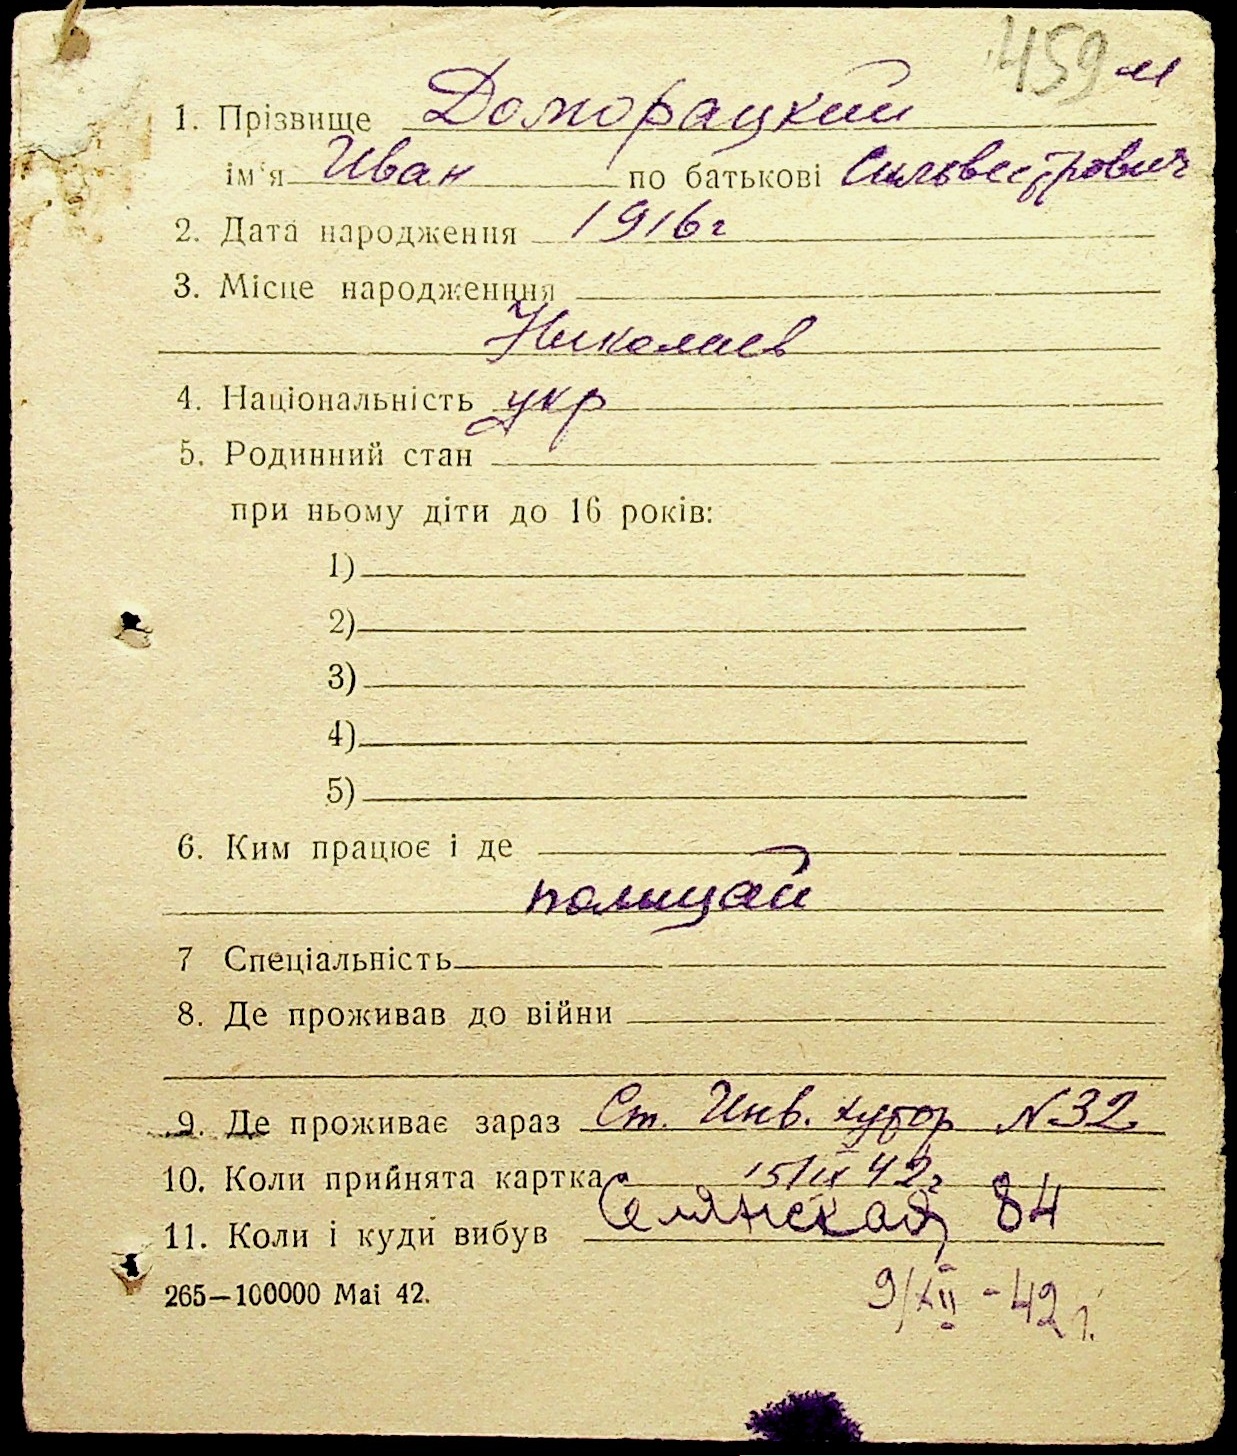 459 м
1. Прізвище Доморацкий
ім'я Иван по батькові Сильвестрович
2. Дата народження 1916 г
3. Місце народженння
Николаев
4. Національність укр
5. Родинний стан
при ньому діти до 16 років:
1)
2)
3)
4)
5)
6. Ким працює і де
полицай
7 Спеціальність
8. Де проживав до війни
9. Де проживає зараз Ст. Инв. хутор N 32
10. Коли прийнята картка 15/IX 42 г
11. Коли і куди вибув 84
265—100000 Mai 42.
9/XII - 42 г.